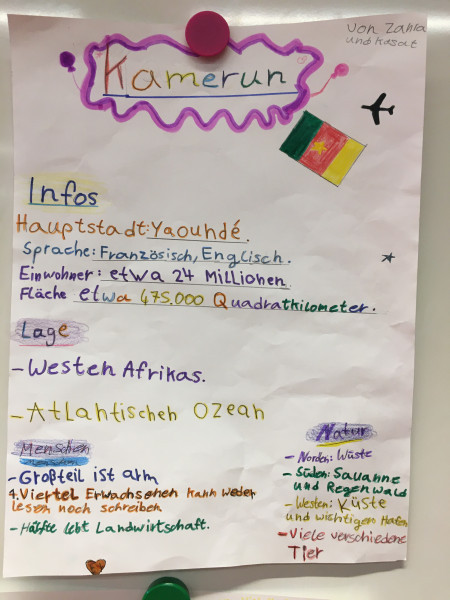 von Zahla
und Kasat
Kamerun
Infos
Hauptstadt: Yaoundé.
Sprache: Französisch, Englisch.
Einwohner: etwa 24 Millionen.
Fläche etwa 475.000 Quadratkilometer.
Lage
- Westen Afrikas.
- Atlantischen Ozean
Menschen
- Großteil ist arm
4. Viertel Erwachsenen kann weder
lesen noch schreiben
- Hälfte lebt Landwirtschaft.
Natur
- Norden: Wüste
- Süden: Savanne
und Regenwald
- Westen: Küste
und wichtigen Hafen
- Viele verschiedene
Tier